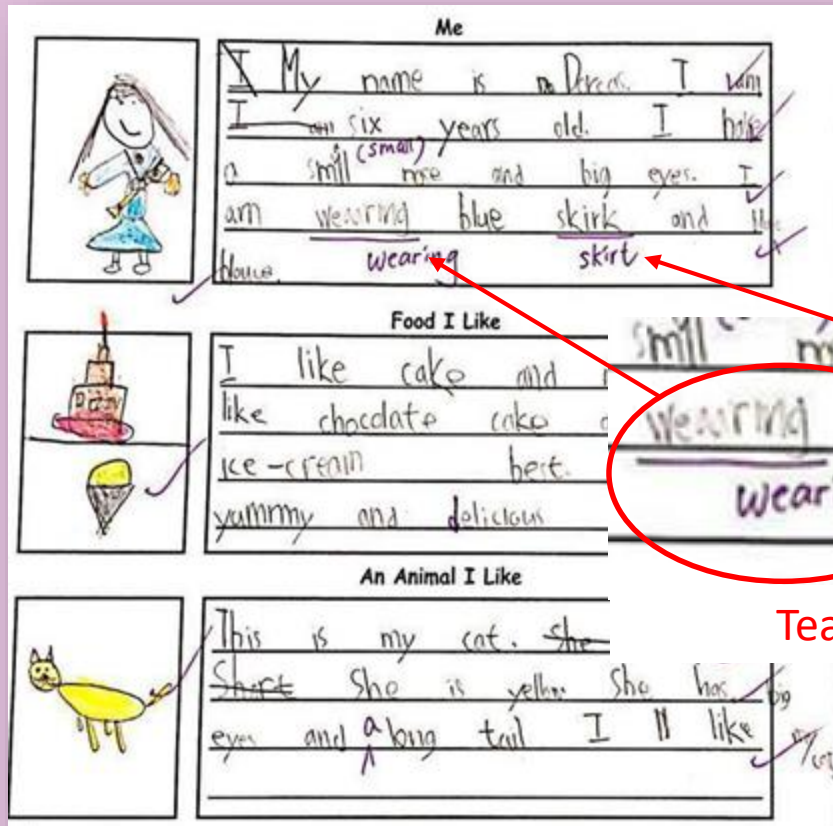 Me
I My name is Dereas. I
I am six years old. I have
(small)
a smill nose and big eyes. I
am wearring blue skirk and
wearing skirt
blouce.
Food I Like
I like cake and
like chocolate cake
ice-cream best.
yummy and delicious
smill
wearring
wear
Tea
An Animal I Like
This is my cat. She
Short She is yellow She has big
eyes and a long tail I ll like